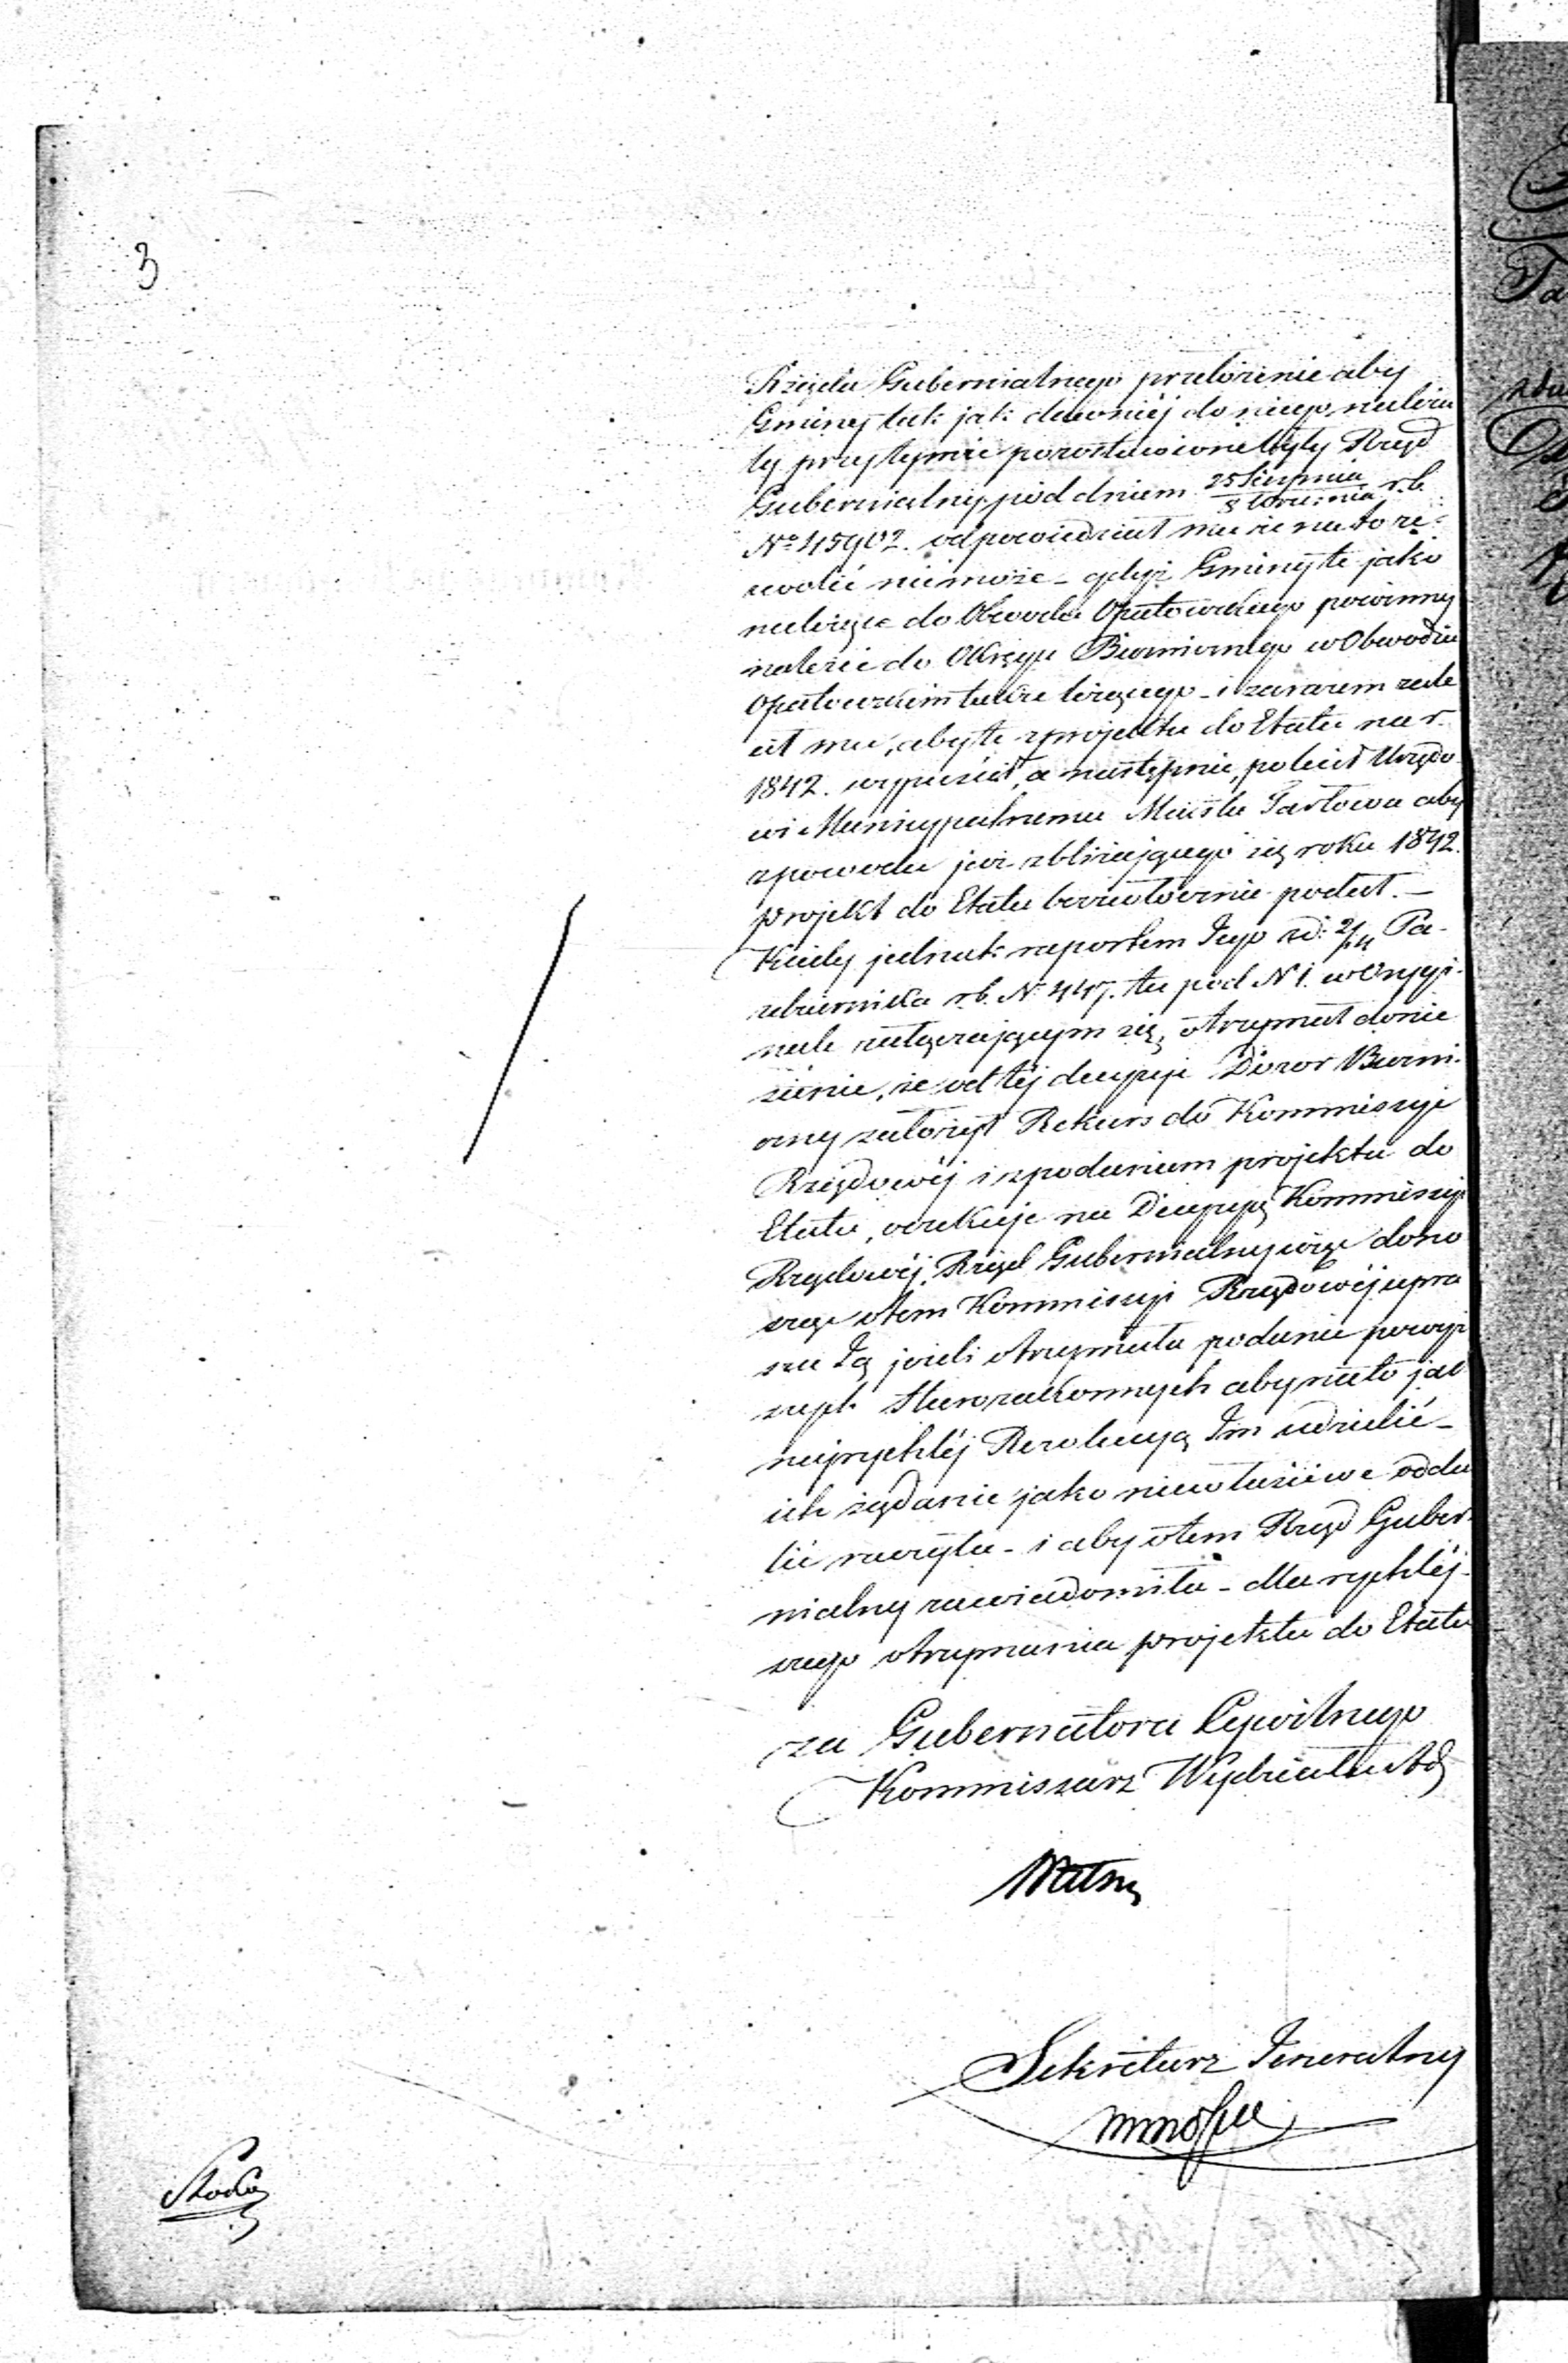 3
Rządu Gubernialnego przełożenie aby
Gminy tak jak dawniéj do niego należa
ły przytymże pozostawione były Rząd
Gubernialny pod dniem 25 Sierpnia / 8 Września r.b.
No 45902. odpowiedział mu że na to ze-
zwolić niemoże – gdyż Gminy te jako
należące do Obwodu Opatowskiego powinny
należeć do Okręgu Bużnicznego w Obwodzie
Opatowskim także leżącego – i zarazem zale
cił mu, aby te z projektu do Etatu na r.
1842. wypuścił, a następnie polecił Urzędo-
wi Municypalnemu Miasta Tarłowa aby
z powodu już zbliżającego się roku 1842.
projekt do Etatu bezzwłocznie podał. –
Kiedy jednak raportem Jego z d: 2/14 Pa-
ździernika r.b. N. 447. tu pod N 1. w Orygi-
nale załączającym się, otrzymał donie
sienie, że od téj decyzyi Dozor Bużni-
czny założył Rekurs do Kommissyi
Rządowéj i z podaniem projektu do
Etatu, oczekuje na Decyzyą Kommissyi
Rządowéj. Rząd Gubernialny więc dono
sząc o tem Kommissyi Rządowéj upra
sza Ją jeżeli otrzymała podanie powyż
szych Starozakonnych aby na to jak
najrychléj Rezolucyą Im udzielić –
ich żądanie jako niewłaściwe odda
lić raczyła – i aby o tem Rząd Guber-
nialny zawiadomiła – dla rychléj-
szego otrzymania projektu do Etatu
za Gubernatora Cywilnego
Kommissarz Wydziału
Sekretarz Jeneralny